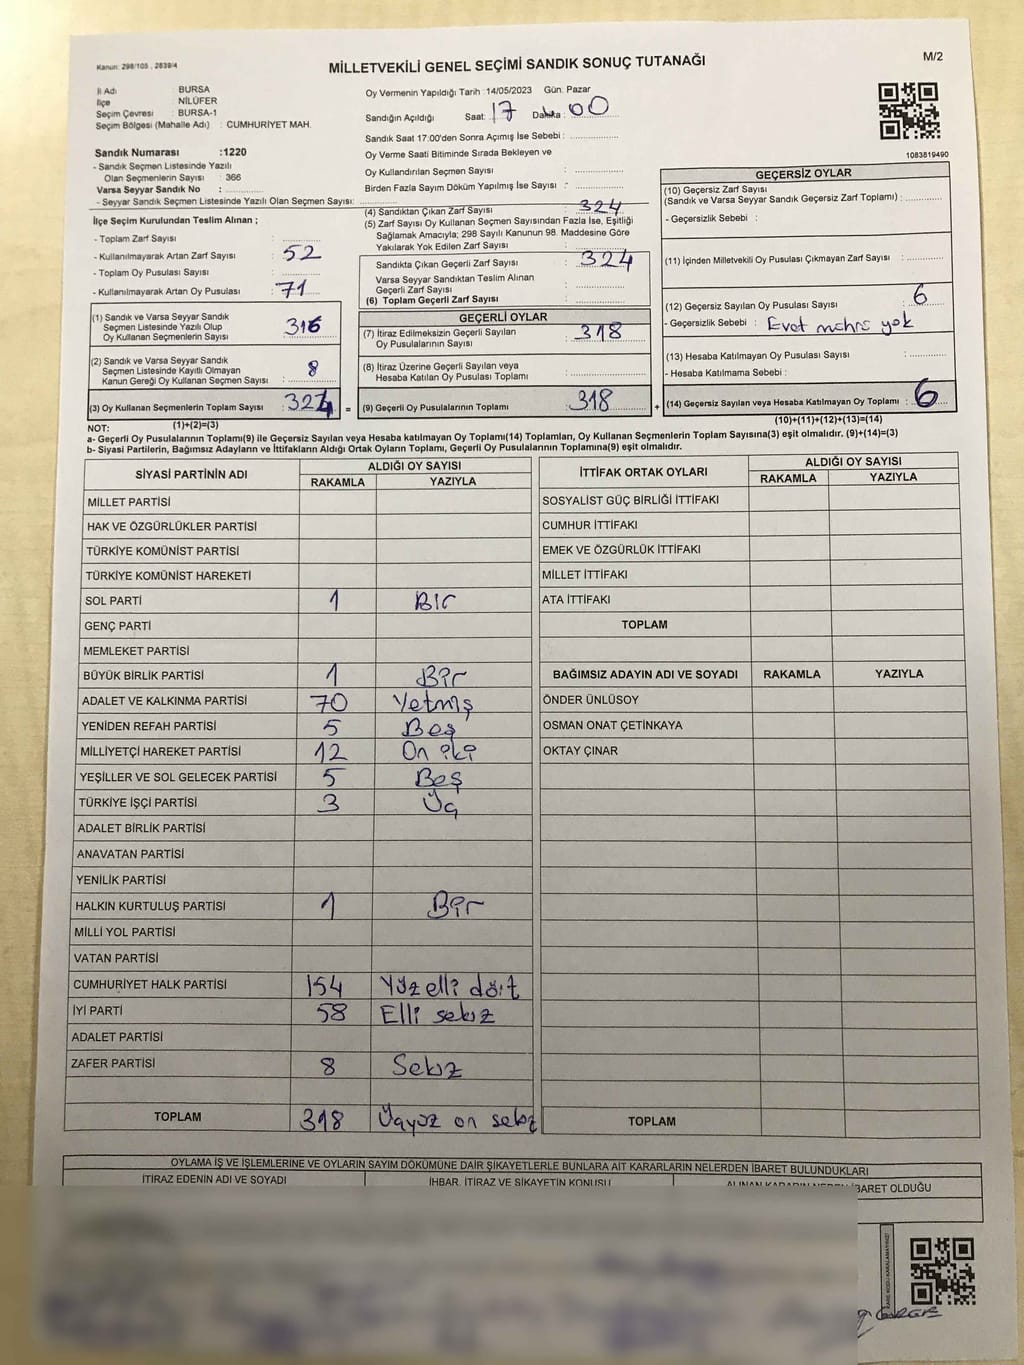 Kanun: 298/105 , 2839/4
MİLLETVEKİLİ GENEL SEÇİMİ SANDIK SONUÇ TUTANAĞI
M/2
İl Adı : BURSA
İlçe : NİLÜFER
Seçim Çevresi : BURSA-1
Seçim Bölgesi (Mahalle Adı) : CUMHURİYET MAH.
Sandık Numarası :1220
- Sandık Seçmen Listesinde Yazılı
Olan Seçmenlerin Sayısı : 366
Varsa Seyyar Sandık No :
- Seyyar Sandık Seçmen Listesinde Yazılı Olan Seçmen Sayısı:
Oy Vermenin Yapıldığı Tarih :14/05/2023 Gün: Pazar
Sandığın Açıldığı Saat: 17 Dakika : 00
Sandık Saat 17:00'den Sonra Açımış İse Sebebi :
Oy Verme Saati Bitiminde Sırada Bekleyen ve
Oy Kullandırılan Seçmen Sayısı :
Birden Fazla Sayım Döküm Yapılmış İse Sayısı :
1083819490
İlçe Seçim Kurulundan Teslim Alınan ;
- Toplam Zarf Sayısı :
- Kullanılmayarak Artan Zarf Sayısı : 52
- Toplam Oy Pusulası Sayısı :
- Kullanılmayarak Artan Oy Pusulası : 71
(1) Sandık ve Varsa Seyyar Sandık
Seçmen Listesinde Yazılı Olup
Oy Kullanan Seçmenlerin Sayısı : 316
(2) Sandık ve Varsa Seyyar Sandık
Seçmen Listesinde Kayıtlı Olmayan
Kanun Gereği Oy Kullanan Seçmen Sayısı : 8
(3) Oy Kullanan Seçmenlerin Toplam Sayısı : 324 =
(1)+(2)=(3)
(4) Sandıktan Çıkan Zarf Sayısı : 324
(5) Zarf Sayısı Oy Kullanan Seçmen Sayısından Fazla İse, Eşitliği
Sağlamak Amacıyla; 298 Sayılı Kanunun 98. Maddesine Göre
Yakılarak Yok Edilen Zarf Sayısı :
Sandıkta Çıkan Geçerli Zarf Sayısı : 324
Varsa Seyyar Sandıktan Teslim Alınan
Geçerli Zarf Sayısı :
(6) Toplam Geçerli Zarf Sayısı :
GEÇERLİ OYLAR
(7) İtiraz Edilmeksizin Geçerli Sayılan
Oy Pusulalarının Sayısı : 318
(8) İtiraz Üzerine Geçerli Sayılan veya
Hesaba Katılan Oy Pusulası Toplamı :
(9) Geçerli Oy Pusulalarının Toplamı : 318 +
GEÇERSİZ OYLAR
(10) Geçersiz Zarf Sayısı
(Sandık ve Varsa Seyyar Sandık Geçersiz Zarf Toplamı) :
- Geçersizlik Sebebi :
(11) İçinden Milletvekili Oy Pusulası Çıkmayan Zarf Sayısı :
(12) Geçersiz Sayılan Oy Pusulası Sayısı : 6
- Geçersizlik Sebebi : Evet mührü yok
(13) Hesaba Katılmayan Oy Pusulası Sayısı :
- Hesaba Katılmama Sebebi :
(14) Geçersiz Sayılan veya Hesaba Katılmayan Oy Toplamı : 6
(10)+(11)+(12)+(13)=(14)
NOT:
a- Geçerli Oy Pusulalarının Toplamı(9) ile Geçersiz Sayılan veya Hesaba katılmayan Oy Toplamı(14) Toplamları, Oy Kullanan Seçmenlerin Toplam Sayısına(3) eşit olmalıdır. (9)+(14)=(3)
b- Siyasi Partilerin, Bağımsız Adayların ve İttifakların Aldığı Ortak Oyların Toplamı, Geçerli Oy Pusulalarının Toplamına(9) eşit olmalıdır.
SİYASİ PARTİNİN ADI ALDIĞI OY SAYISI
RAKAMLA YAZIYLA
MİLLET PARTİSİ
HAK VE ÖZGÜRLÜKLER PARTİSİ
TÜRKİYE KOMÜNİST PARTİSİ
TÜRKİYE KOMÜNİST HAREKETİ
SOL PARTİ 1 Bir
GENÇ PARTİ
MEMLEKET PARTİSİ
BÜYÜK BİRLİK PARTİSİ 1 Bir
ADALET VE KALKINMA PARTİSİ 70 Yetmiş
YENİDEN REFAH PARTİSİ 5 Beş
MİLLİYETÇİ HAREKET PARTİSİ 12 On iki
YEŞİLLER VE SOL GELECEK PARTİSİ 5 Beş
TÜRKİYE İŞÇİ PARTİSİ 3 Üç
ADALET BİRLİK PARTİSİ
ANAVATAN PARTİSİ
YENİLİK PARTİSİ
HALKIN KURTULUŞ PARTİSİ 1 Bir
MİLLİ YOL PARTİSİ
VATAN PARTİSİ
CUMHURİYET HALK PARTİSİ 154 Yüzelli dört
İYİ PARTİ 58 Elli sekiz
ADALET PARTİSİ
ZAFER PARTİSİ 8 Sekiz
TOPLAM 318 Üçyüz on sekiz
İTTİFAK ORTAK OYLARI ALDIĞI OY SAYISI
RAKAMLA YAZIYLA
SOSYALİST GÜÇ BİRLİĞİ İTTİFAKI
CUMHUR İTTİFAKI
EMEK VE ÖZGÜRLÜK İTTİFAKI
MİLLET İTTİFAKI
ATA İTTİFAKI
TOPLAM
BAĞIMSIZ ADAYIN ADI VE SOYADI RAKAMLA YAZIYLA
ÖNDER ÜNLÜSOY
OSMAN ONAT ÇETİNKAYA
OKTAY ÇINAR
TOPLAM
OYLAMA İŞ VE İŞLEMLERİNE VE OYLARIN SAYIM DÖKÜMÜNE DAİR ŞİKAYETLERLE BUNLARA AİT KARARLARIN NELERDEN İBARET BULUNDUKLARI
İTİRAZ EDENİN ADI VE SOYADI
İHBAR, İTİRAZ VE ŞİKAYETİN KONUSU
ALINAN KARARIN NEDEN İBARET OLDUĞU